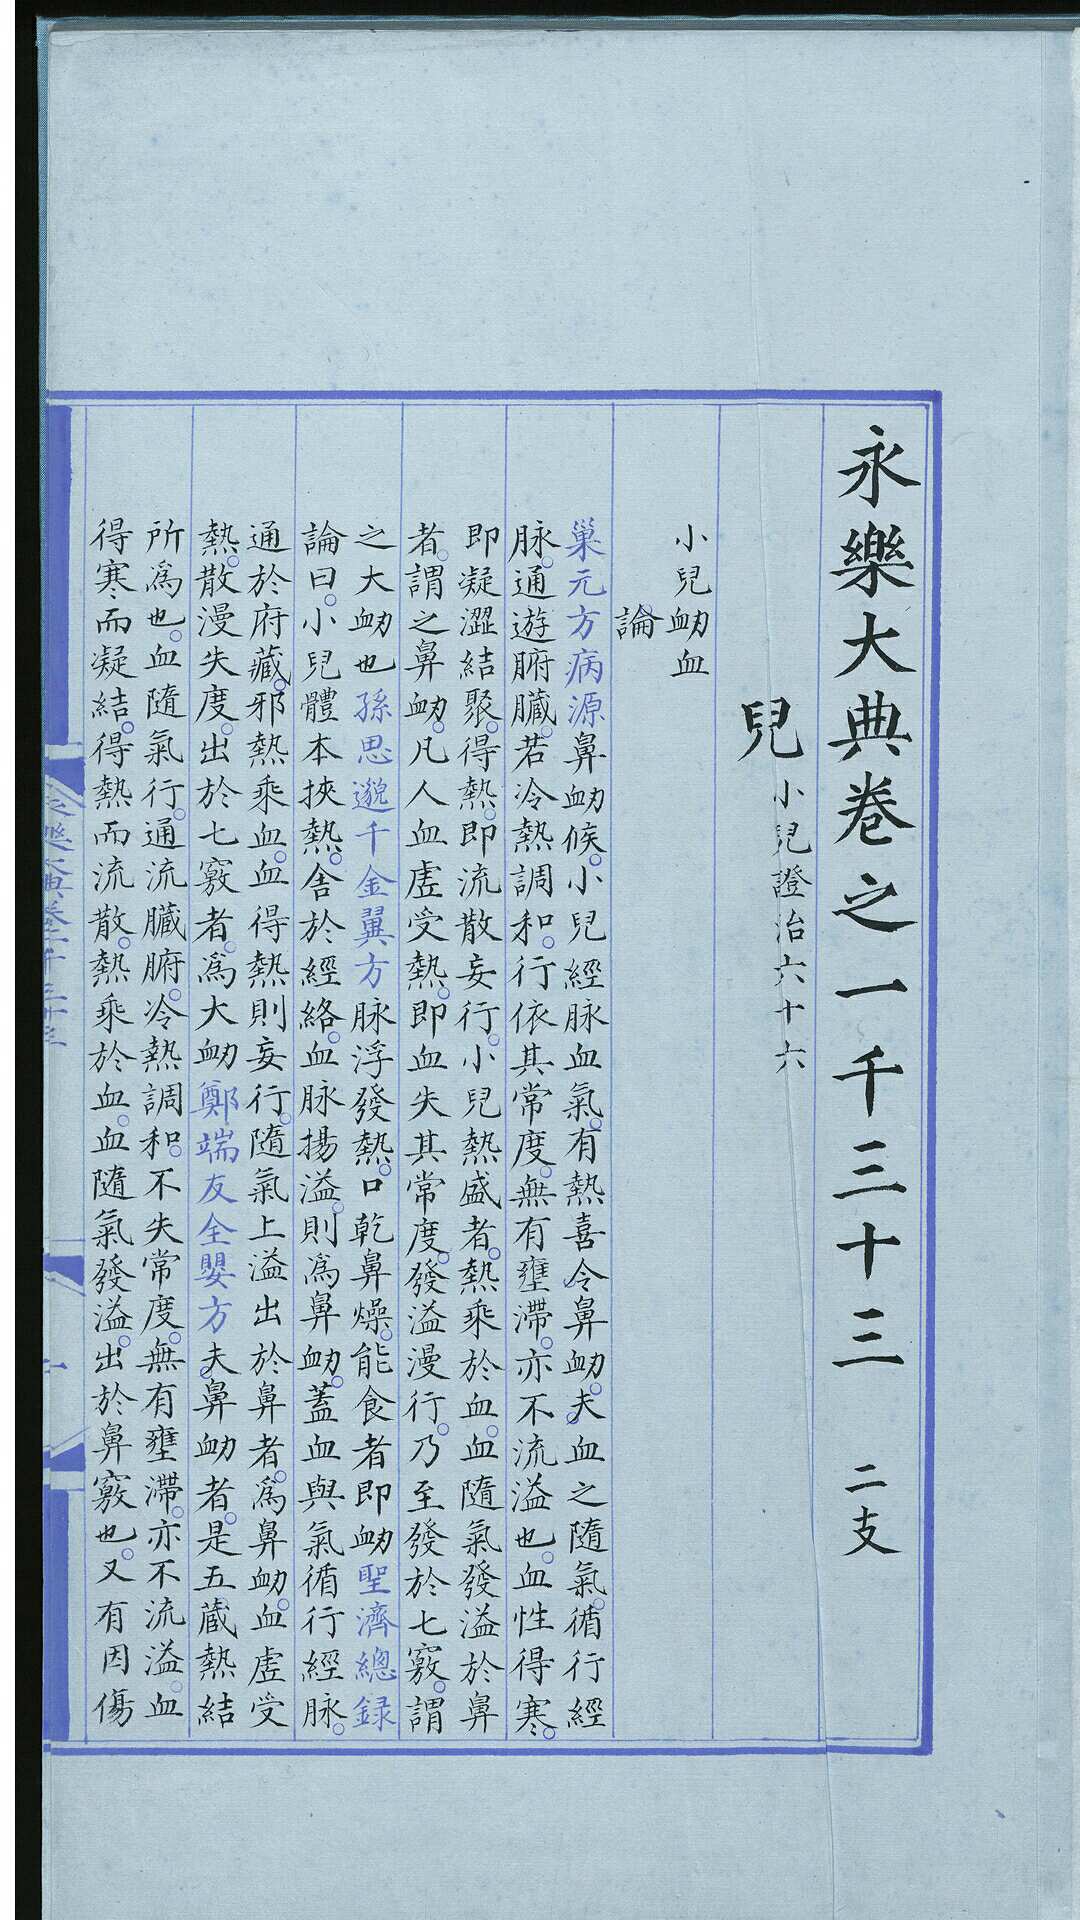 永樂大典卷之一千三十三 二支
兒 小兒證治六十六
小兒衂血
論
巢元方病源鼻衂候。小兒經脉血氣。有熱喜令鼻衂。夫血之隨氣。循行經
脉。通遊腑臓。若冷熱調和。行依其常度。無有壅滯。亦不流溢也。血性得寒。
即凝澀結聚。得熱。即流散妄行。小兒熱盛者。熱乘於血。血隨氣發溢於鼻
者。謂之鼻衂。凡人血虛受熱。即血失其常度。發溢漫行。乃至發於七竅。謂
之大衂也孫思邈千金翼方脉浮發熱。口乾鼻燥。能食者即衂聖濟總録
論曰。小兒體本挾熱。舎於經絡。血脉揚溢。則爲鼻衂。蓋血與氣循行經脉。
通於府藏。邪熱乘血。血得熱則妄行。隨氣上溢出於鼻者。爲鼻衂。血虛受
熱。散漫失度。出於七竅者。爲大衂鄭端友全嬰方夫鼻衂者。是五蔵熱結
所爲也。血隨氣行。通流臓腑。冷熱調和。不失常度。無有壅滯。亦不流溢。血
得寒而凝結。得熱而流散。熱乘於血。血隨氣發溢。出於鼻竅也。又有因傷